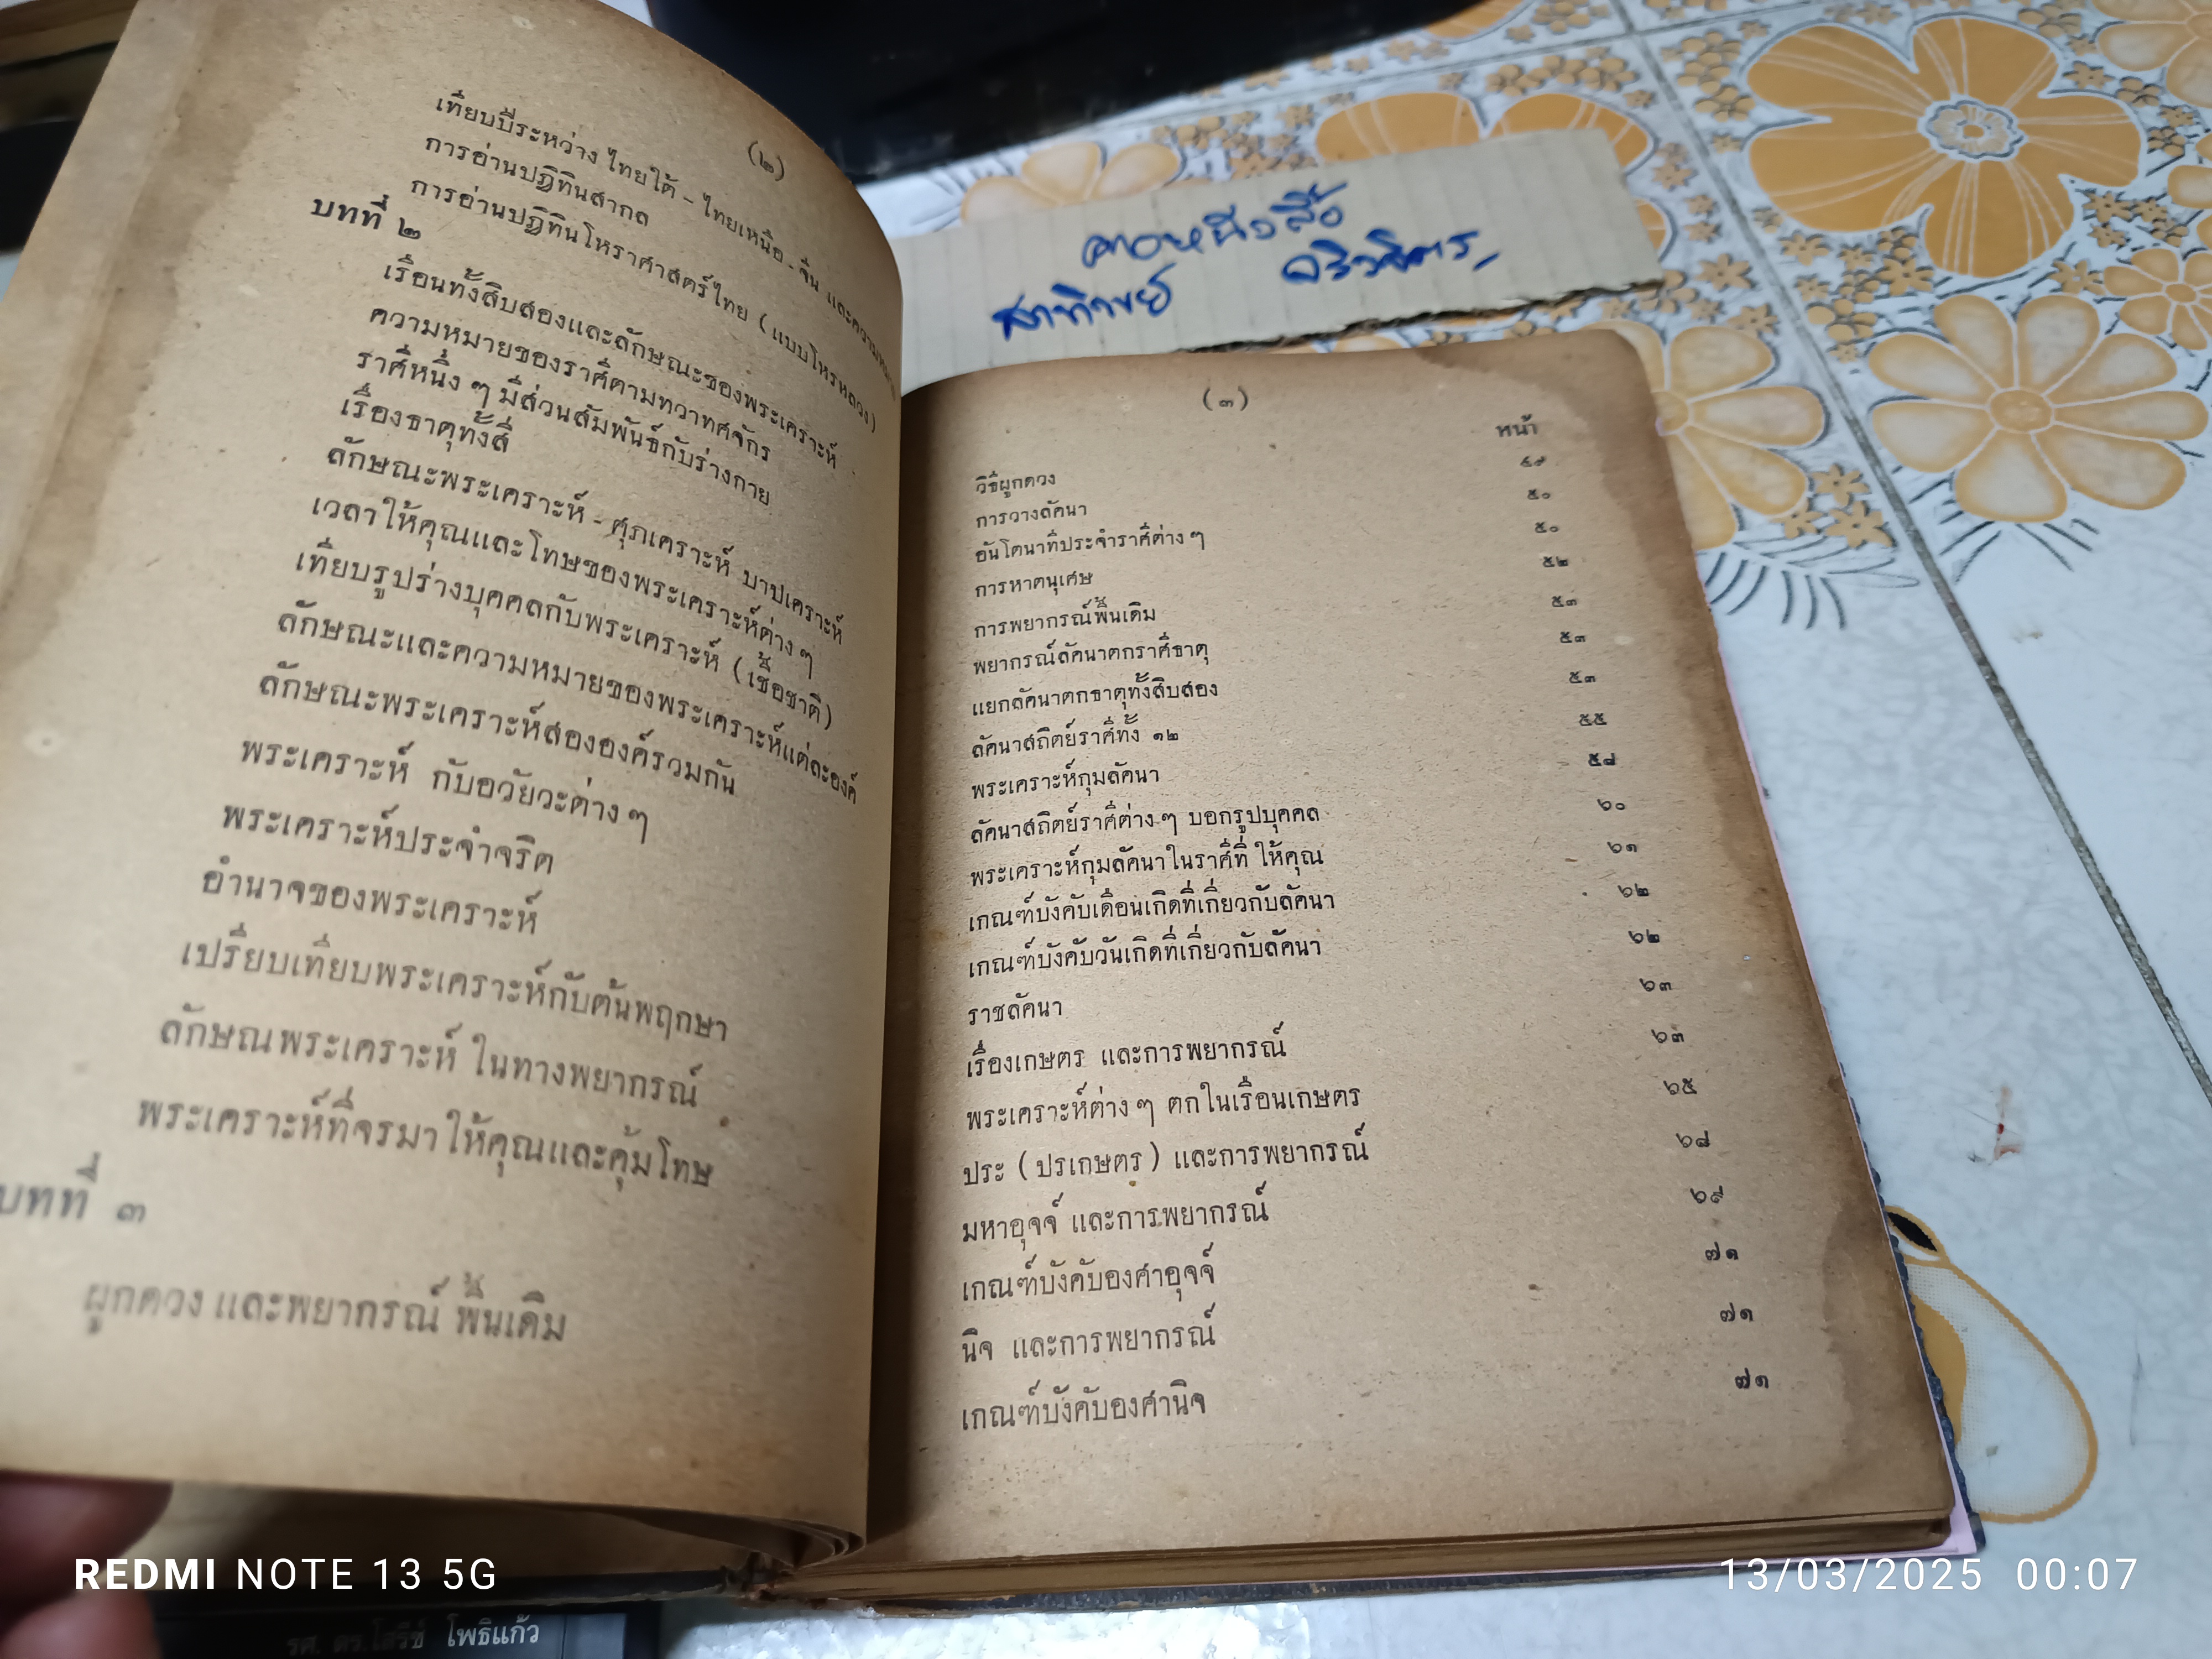 (๒)
เทียบปีระหว่าง ไทยใต้ - ไทยเหนือ - จีน และความหมาย
การอ่านปฏิทินสากล
การอ่านปฏิทินโหราศาสตร์ไทย (แบบโหรหลวง)
บทที่ ๒
เรือนทั้งสิบสองและลักษณะของพระเคราะห์
ความหมายของราศีตามทวาทศจักร
ราศีหนึ่ง ๆ มีส่วนสัมพันธ์กับร่างกาย
เรื่องธาตุทั้งสี่
ลักษณะพระเคราะห์ - ศุภเคราะห์ บาปเคราะห์
เวลาให้คุณและโทษของพระเคราะห์ต่าง ๆ
เทียบรูปร่างบุคคลกับพระเคราะห์ (เชื้อชาติ)
ลักษณะและความหมายของพระเคราะห์แต่ละองค์
ลักษณะพระเคราะห์สององค์รวมกัน
พระเคราะห์ กับอวัยวะต่าง ๆ
พระเคราะห์ประจำจริต
อำนาจของพระเคราะห์
เปรียบเทียบพระเคราะห์กับต้นพฤกษา
ลักษณพระเคราะห์ ในทางพยากรณ์
พระเคราะห์ที่จรมาให้คุณและคุ้มโทษ
บทที่ ๓
ผูกดวง และพยากรณ์ พื้นเดิม
(๓)
หน้า
วิธีผูกดวง ๔๙
การวางลัคนา ๕๐
อันโตนาทีประจำราศีต่าง ๆ ๕๐
การหาตนุเศษ ๕๒
การพยากรณ์พื้นเดิม ๕๓
พยากรณ์ลัคนาตกราศีธาตุ ๕๓
แยกลัคนาตกธาตุทั้งสิบสอง ๕๓
ลัคนาสถิตย์ราศีทั้ง ๑๒ ๕๕
พระเคราะห์กุมลัคนา ๕๘
ลัคนาสถิตย์ราศีต่าง ๆ บอกรูปบุคคล ๖๐
พระเคราะห์กุมลัคนาในราศีที่ ให้คุณ ๖๑
เกณฑ์บังคับเดือนเกิดที่เกี่ยวกับลัคนา ๖๒
เกณฑ์บังคับวันเกิดที่เกี่ยวกับลัคนา ๖๒
ราชลัคนา ๖๓
เรื่องเกษตร และการพยากรณ์ ๖๓
พระเคราะห์ต่าง ๆ ตกในเรือนเกษตร ๖๕
ประ (ปรเกษตร) และการพยากรณ์ ๖๘
มหาอุจจ์ และการพยากรณ์ ๖๙
เกณฑ์บังคับองศาอุจจ์ ๗๑
นิจ และการพยากรณ์ ๗๑
เกณฑ์บังคับองศานิจ ๗๑
รศ. ดร.โสรีช์ โพธิแก้ว
REDMI NOTE 13 5G
13/03/2025 00:07